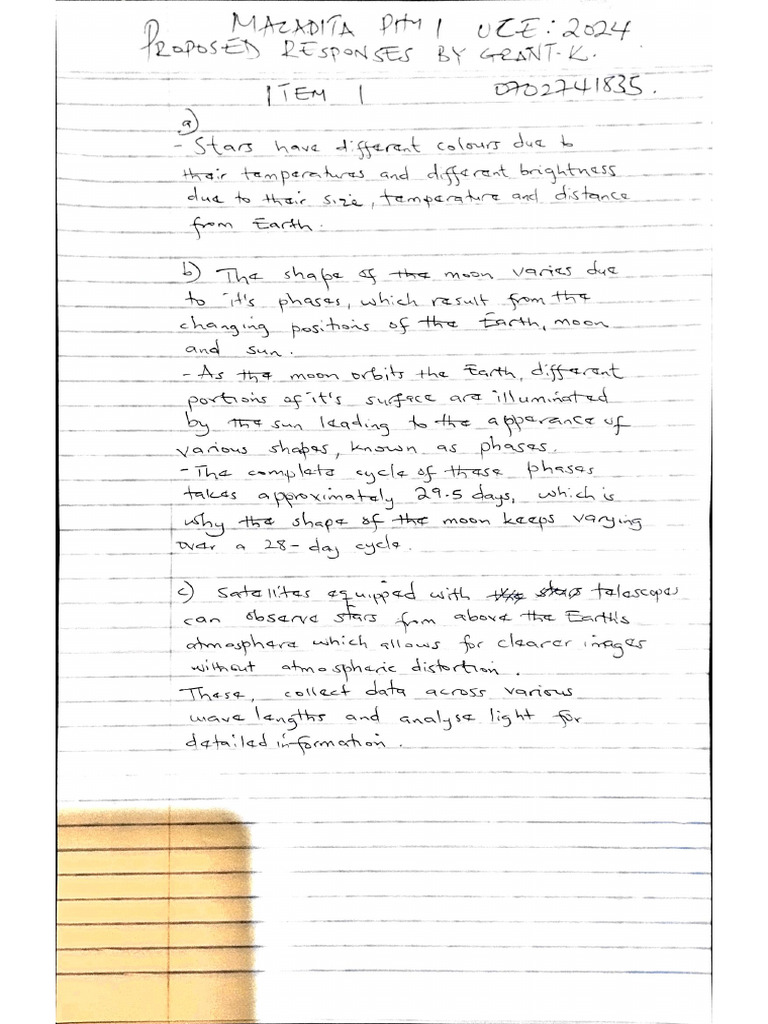 MAZADITA PHY 1 UCE: 2024
PROPOSED RESPONSES BY GRANT-K.
ITEM 1 0702741835.
a)
- Stars have different colours due to
their temperatures and different brightness
due to their size, temperature and distance
from Earth.
b) The shape of the moon varies due
to it's phases, which result from the
changing positions of the Earth, moon
and sun.
- As the moon orbits the Earth, different
portions of it's surface are illuminated
by the sun leading to the apperance of
various shapes, known as phases.
- The complete cycle of these phases
takes approximately 29.5 days, which is
why the shape of the moon keeps varying
over a 28-day cycle.
c) Satellites equipped with telescopes
can observe stars from above the Earth's
atmosphere which allows for clearer images
without atmospheric distortion.
These, collect data across various
wave lengths and analyse light for
detailed information.